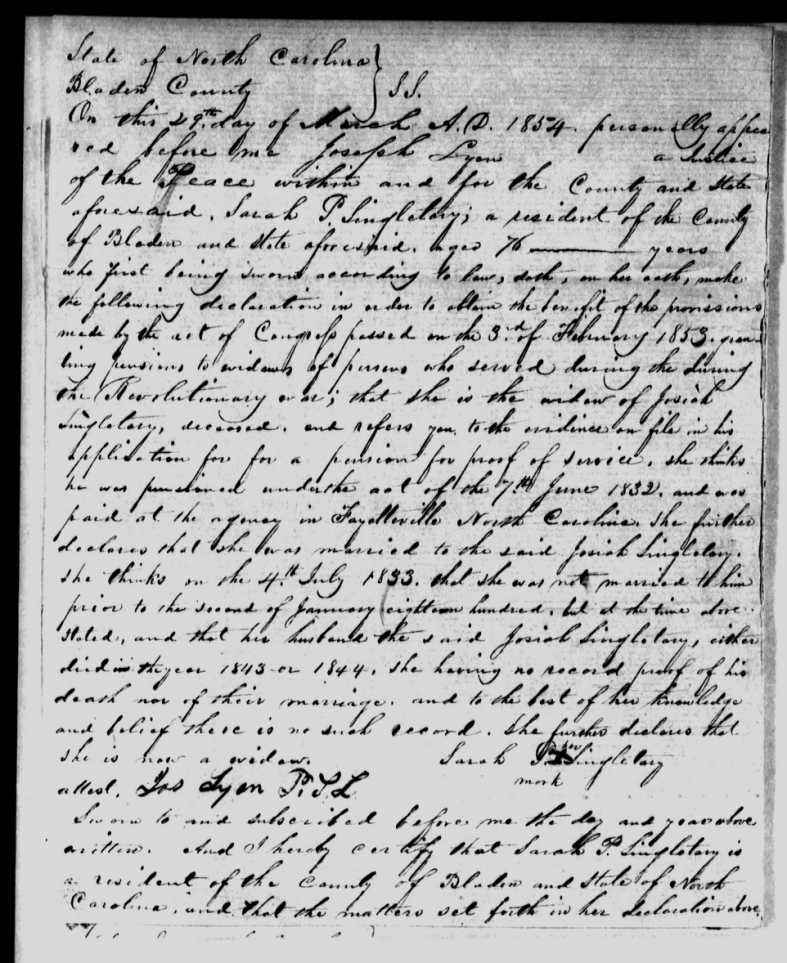 State of North Carolina }
Bladen County } SS.
On this 29th day of March A.D. 1854. personally appea
red before me Joseph Lyon a Justice
of the Peace within and for the County and State
aforesaid, Sarah P. Singletary; a resident of the County
of Bladen and State aforesaid. aged 76 ——— years
who first being sworn according to law, doth, on her oath, make
the following declaration in order to obtain the benefit of the provisions
made by the act of Congress passed on the 3.d of February 1853. gran-
ting pensions to widows of persons who served during the during
the Revolutionary war; that she is the widow of Josiah
Singletary, deceased. and refers you to the evidence on file in his
application for for a pension for proof of service. she thinks
he was pensioned under the act of the 7.th June 1832. and was
paid at the agency in Fayetteville North Carolina. She further
declares that she was married to the said Josiah Singletary.
she thinks on the 4.th July 1833. that she was not married to him
prior to the second of Januuary eighteen hundred. but at the time above
stated, and that her husband the said Josiah Singletary, either
died in the year 1843 or 1844. she having no record proof of his
death nor of their marriage. and to the best of her knowledge
and belief there is no such record. She further declares that
she is now a widow. Sarah P. her Singletary
mark
attest. Jos Lyon
Sworn to and subscribed before me the day and year above
written. And I hereby certify that Sarah P. Singletary is
a resident of the County of Bladen and State of North
Carolina, and that the matters set forth in her declaration above